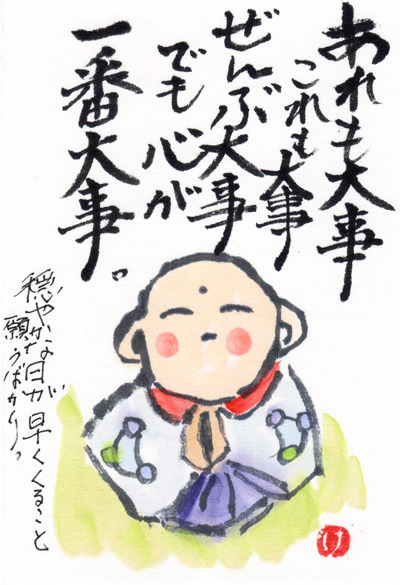 あれも大事
これも大事
ぜんぶ大事
でも心が
一番大事。
穏やかな日が早くくること
願うばかり。
け